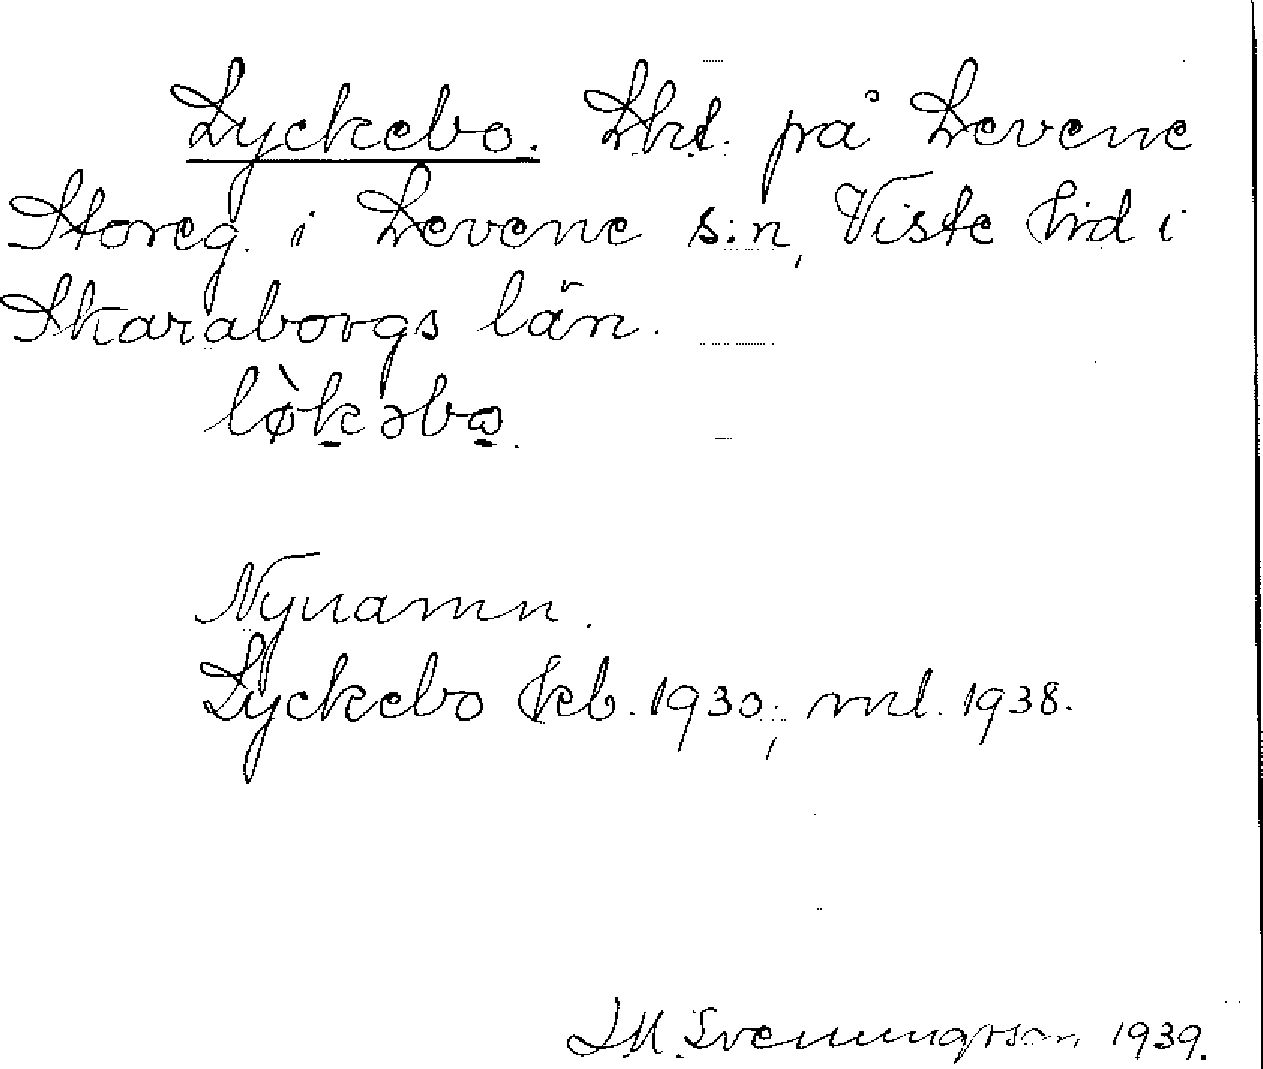 Lyckebo. Lht. på Levene
Storeg. i Levene s:n, Viste hrd i
Skaraborgs län.
lø̀kəbo.
Nynamn.
Lyckebo kb. 1930; ml. 1938.
Svenungsson 1939.